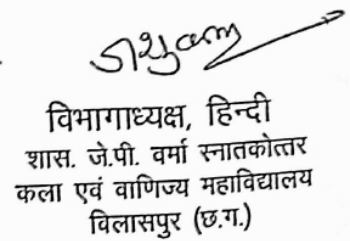 विभागाध्यक्ष, हिन्दी
शास. जे.पी. वर्मा स्नातकोत्तर
कला एवं वाणिज्य महाविद्यालय
विलासपुर (छ.ग.)